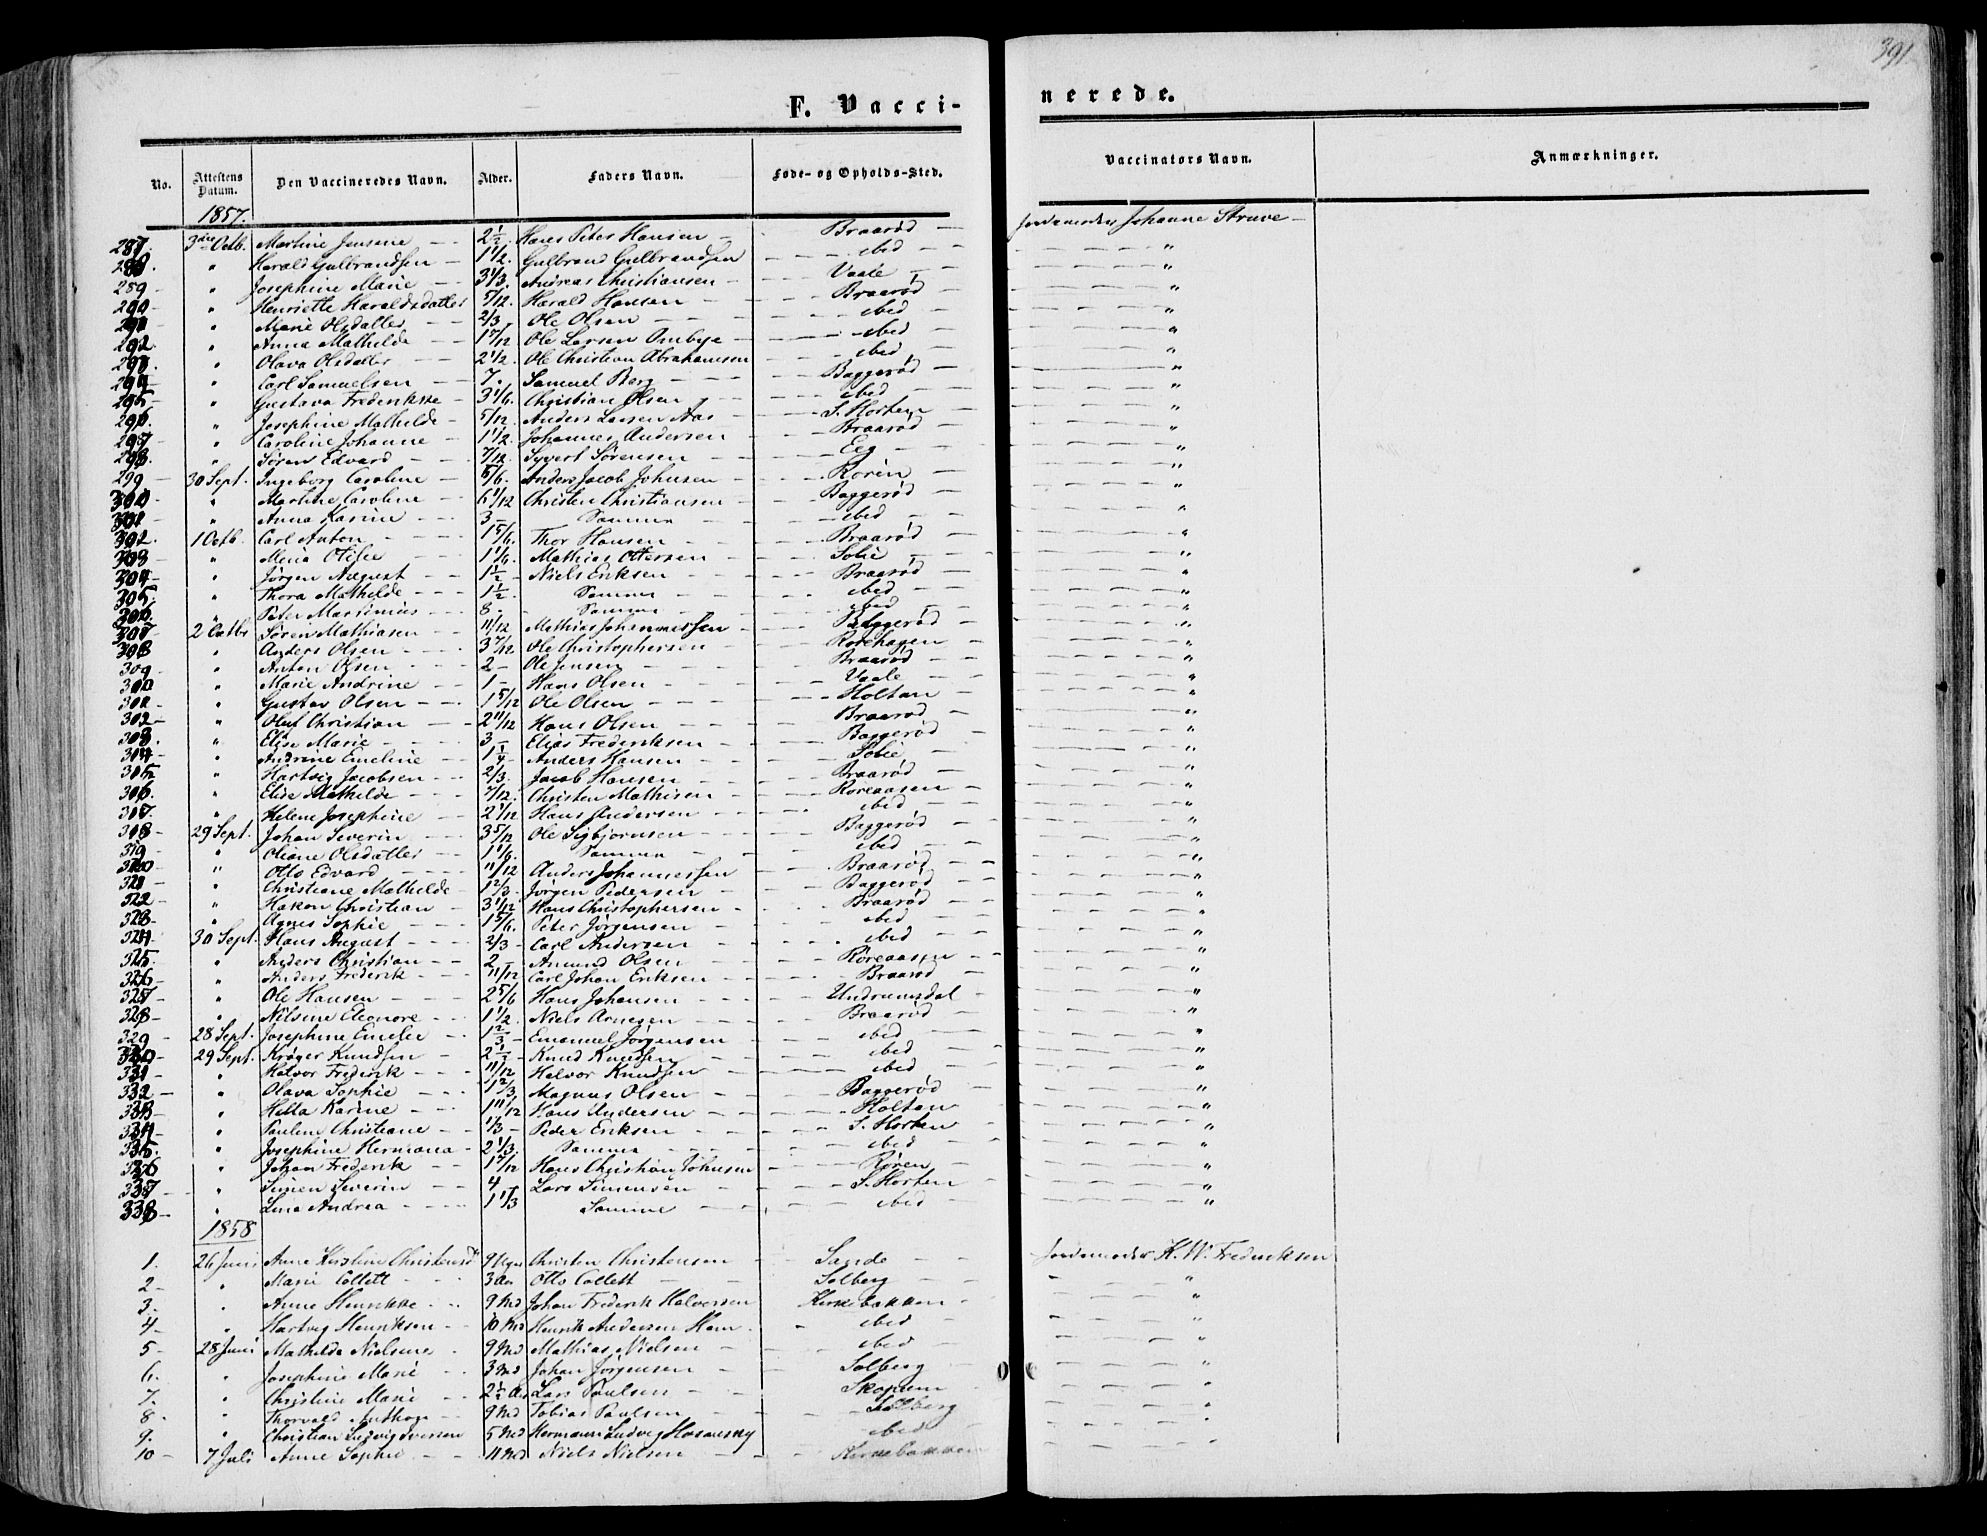 391
F. Vacci-
nerede.
No. Attestens Datum. Den Vaccineredes Navn. Alder. Faders Navn. Føde- og Opholds-Sted. Vaccinators Navn. Anmærkninger.
1857.
287. 3die Octb. Martine Jensine 2 1/2 Hans Peter Hansen Braarød Jordemoder Johanne Struve
288. " Harald Gulbrandsen 1 1/2. Gulbrand Gulbrandsen ibid "
289 " Josephine Marie 3 1/3. Andreas Christiansen Vaale "
290 " Henriette Haraldsdatter 5/12. Harald Hansen Braarød "
291 " Marie Olsdatter 2/3 Ole Olsen ibid "
292. " Anna Mathilde 1 7/12 Ole Larsen Ombye ibid "
293. " Olava Olsdatter 2 1/2. Ole Christian Abrahamsen ibid "
294 " Carl Samuelsen 7. Samuel Berg Baggerød "
295 " Gustava Frederikke 3 1/6. Christian Olsen ibid "
296. " Josephine Mathilde 5/12. Anders Larsen Aas S. Horten "
297 " Caroline Johanne 1 1/2. Johannes Andersen Braarød "
298. " Søren Edvard 7/12. Syvert Sørensen Eeg "
299 30 Sept. Ingeborg Caroline 5/6. Anders Jacob Johnsen Roren "
300 " Martine Caroline 6 1/12 Christen Christiansen Baggerød "
301 " Anna Karine 3 Samme ibid "
302. 1 Octb. Carl Anton 1 5/6. Thor Hansen Braarød "
303 " Mina Otilie 1 1/6. Mathias Ottersen Solie "
304 " Jørgen August 1 1/2 Niels Eriksen Braarød "
305. " Thora Mathilde 1 1/2. Samme ibid "
306. " Peter Martinius 8. Samme ibid "
307 2 Octbr Søren Mathiasen 11/12 Mathias Johannessen Baggerød "
308 " Anders Olsen 3 7/12. Ole Christophersen Rorehagen "
309 " Anton Olsen 2 Ole Jensen Braarød "
300 " Marie Andrine 1 Hans Olsen Vaale "
301 " Gustav Olsen 1 5/12 Ole Olsen Holtan "
302 " Oluf Christian 2 11/12 Hans Olsen Braarød "
303. " Elise Marie 3 Elias Frederiksen Baggerød "
304 " Andrine Emeline 1 1/4 Anders Hansen Solie "
305 " Hartvig Jacobsen 2/3. Jacob Hansen Braarød "
306. " Elise Mathilde 7/12. Christen Mathisen Roreaasen "
307. " Helene Josephine 2 1/12 Hans Andersen ibid "
308 29 Sept. Johan Severin 3 5/12 Ole Sigbjørnsen Baggerød "
319 " Oliane Olsdatter 1 1/6. Samme ibid "
320 " Otto Edvard 11/12 Anders Johannessen Braarød "
321 " Christiane Mathilde 1 2/3. Jørgen Pedersen Baggerød "
322 " Hakon Christian 3 1/12 Hans Christophersen Braarød "
323 " Agnes Sophie 1 5/6. Peter Jørgensen ibid "
324 30 Sept. Hans August 2/3 Carl Andersen ibid "
325 " Anders Christian 2 Amund Olsen Røreaasen "
326 " Anders Frederik 11/12 Carl Johan Eriksen Braarød "
327 " Ole Hansen 2 5/6 Hans Johansen Undrumsdal "
328 " Nilsine Eleonore 1 1/2. Niels Arnesen Braarød "
329 28 Sept. Josephine Emelie 1 2/3 Emanuel Jørgensen ibid "
330 29 Sept. Krøger Knudsen 2 1/3 Knud Knudsen ibid "
331 " Halvor Frederik 11/12 Halvor Knudsen ibid "
332 " Olava Sophie 1 2/3 Magnus Olsen Baggerød "
333 " Hilla Karine 1 11/12 Hans Andersen Holtan "
334 " Pauline Christiane 1/3 Peder Eriksen S. Horten "
335. " Josephine Hermana 2 1/3. Samme ibid "
336 " Johan Frederik 1 7/12 Hans Christian Johnsen Røren "
337 " Simen Severin 4 Lars Simensen S. Horten "
338 " Lina Andrea 1 1/3 Samme ibid "
1858
1. 26 Juni Anne Kirstine Christensd 9 Ugr Christen Christensen Sande Jordemoder K. W. Fredriksen
2 " Marie Collett 3 Aar Otto Collett Solberg "
3. " Anne Henrikke 9 Md Johan Frederik Halvorsen Kirkebakken "
4 " Hartvig Henriksen 10 Md Henrik Andersen Hem ibid "
5 28 Juni Mathilde Nielsine 9 Md Mathias Nielsen ibid "
6. " Josephine Marie 3 Md Johan Jørgensen Solberg "
7. " Christine Marie 2 1/2 Aar Lars Paulsen Skopum "
8 " Thorvald Anthon 9 Md Tobias Paulsen Solberg "
9. " Christian Ludvig Iversen 5 Md Hermann Ludvig ibid "
10 7 Juli Anne Sophie 11 Md Niels Nielsen Kirkebakken